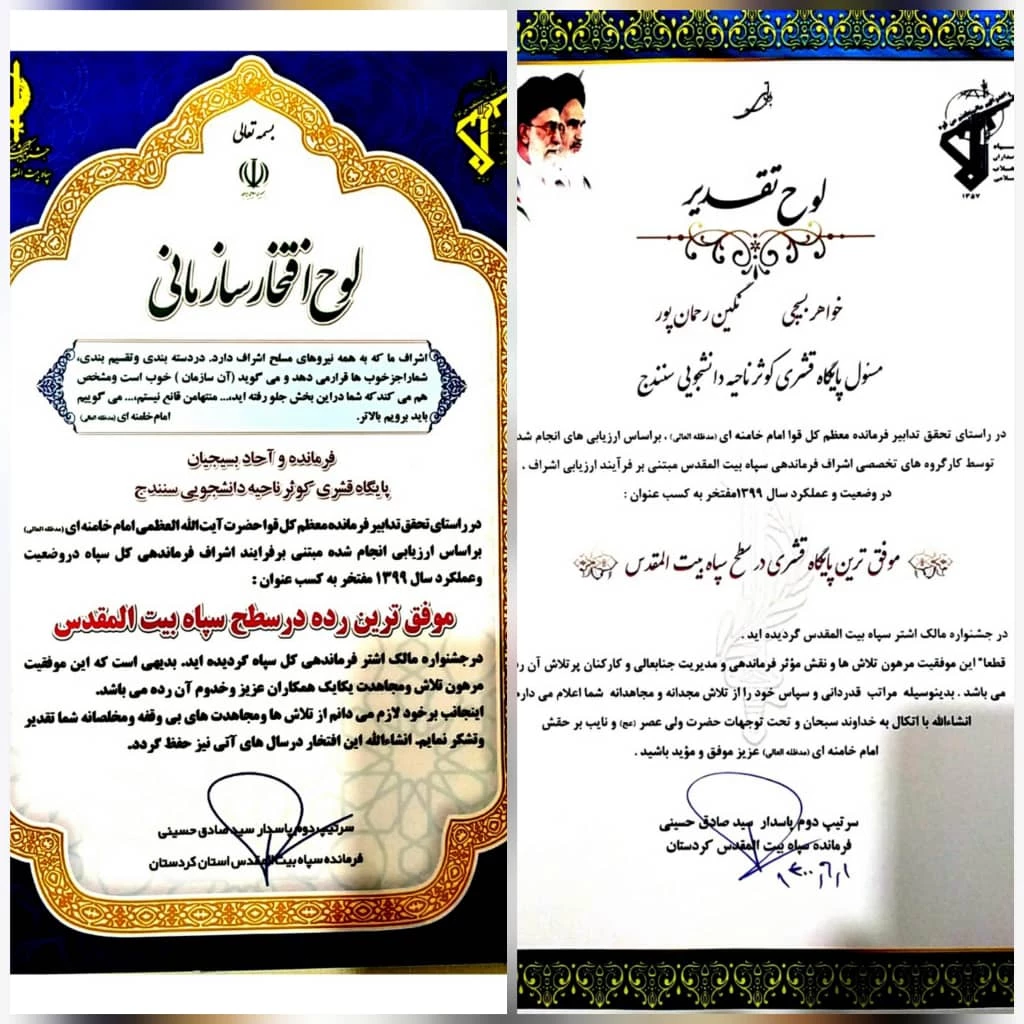 بسمه تعالی
لوح افتخار سازمانی
اشراف ما که به همه نیروهای مسلح اشراف دارد. دردسته بندی وتقسیم بندی،
شمارا جز خوب ها قرار می دهد و می گوید (آن سازمان ) خوب است ومشخص
هم می کند که شما دراین بخش جلو رفته اید،... منتهامن قانع نیستم،... می گوییم
باید برویم بالاتر. امام خامنه ای (مدظله العالی)
فرمانده و آحاد بسیجیان
پایگاه قشری کوثر ناحیه دانشجویی سنندج
در راستای تحقق تدابیر فرمانده معظم کل قوا حضرت آیت الله العظمی امام خامنه ای (مدظله العالی)
براساس ارزیابی انجام شده مبتنی برفرایند اشراف فرماندهی کل سپاه دروضعیت
وعملکرد سال ۱۳۹۹ مفتخر به کسب عنوان :
موفق ترین رده درسطح سپاه بیت المقدس
درجشنواره مالک اشتر فرماندهی کل سپاه گردیده اید. بدیهی است که این موفقیت
مرهون تلاش ومجاهدت یکایک همکاران عزیز وخدوم آن رده می باشد.
اینجانب برخود لازم می دانم از تلاش ها ومجاهدت های بی وقفه ومخلصانه شما تقدیر
وتشکر نمایم. انشاءالله این افتخار درسال های آتی نیز حفظ گردد.
سرتیپ دوم پاسدار سید صادق حسینی
فرمانده سپاه بیت المقدس استان کردستان
سپاه
پاسداران
انقلاب
اسلامی
۱۳۵۷
لوح تقدیر
خواهر بسیجی نگین رحمان پور
مسئول پایگاه قشری کوثر ناحیه دانشجویی سنندج
در راستای تحقق تدابیر فرمانده معظم کل قوا امام خامنه ای (مدظله العالی) ، براساس ارزیابی های انجام شد
توسط کارگروه های تخصصی اشراف فرماندهی سپاه بیت المقدس مبتنی بر فرآیند ارزیابی اشراف ،
در وضعیت و عملکرد سال ۱۳۹۹مفتخر به کسب عنوان :
موفق ترین پایگاه قشری در سطح سپاه بیت المقدس
در جشنواره مالک اشتر سپاه بیت المقدس گردیده اید .
قطعا" این موفقیت مرهون تلاش ها و نقش مؤثر فرماندهی و مدیریت جنابعالی و کارکنان پرتلاش آن رد
می باشد . بدینوسیله مراتب قدردانی و سپاس خود را از تلاش مجدانه و مجاهدانه شما اعلام می دارم
انشاءالله با اتکال به خداوند سبحان و تحت توجهات حضرت ولی عصر (عج) و نایب بر حقش
امام خامنه ای (مدظله العالی) عزیز موفق و مؤید باشید .
سرتیپ دوم پاسدار سید صادق حسینی
فرمانده سپاه بیت المقدس کردستان